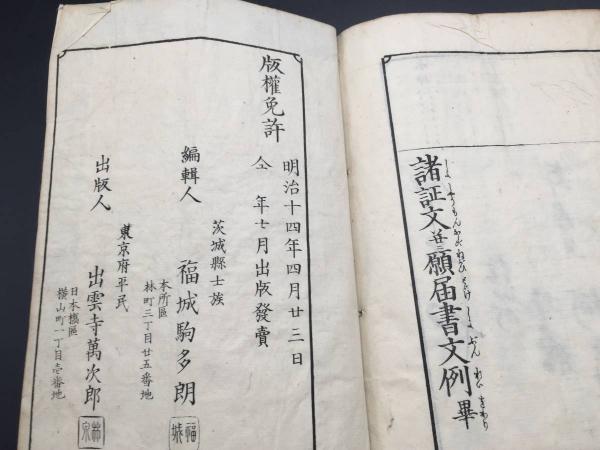 諸証文并ニ願届書文例畢
版權免許
明治十四年四月廿三日
仝年七月出版發賣
茨城縣士族
編輯人 福城駒多朗
本所區
林町三丁目廿五番地
東京府平民
出版人 出雲寺萬次郎
日本橋區
横山町一丁目壱番地
福城